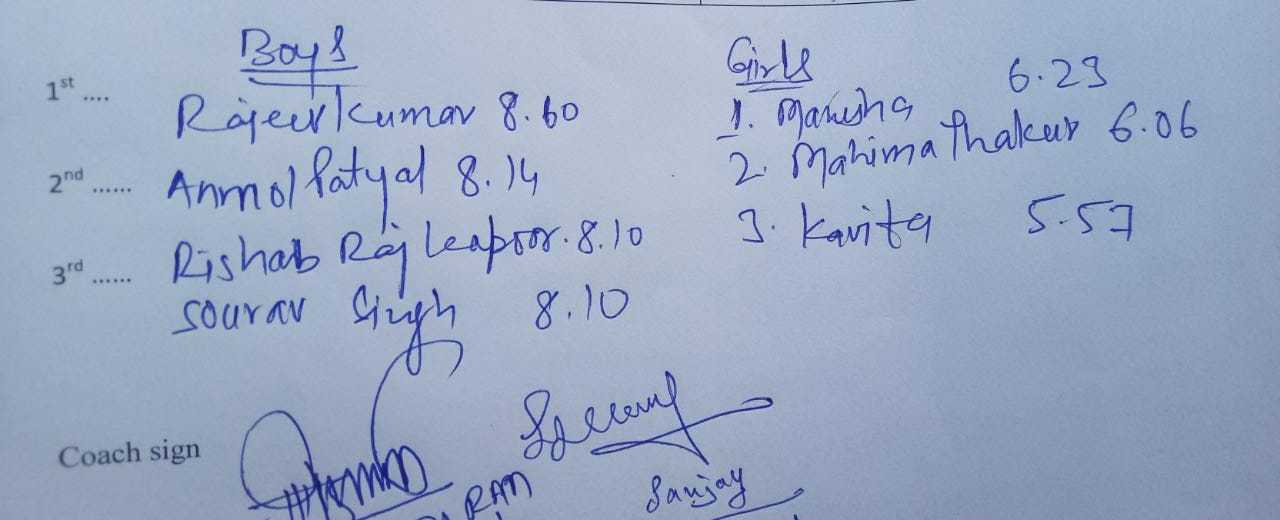 Boys
1st .... Rajeev Kumar 8.60
2nd ...... Anmol Patyal 8.14
3rd ...... Rishab Raj Kapoor. 8.10
Sourav Singh 8.10
Girls
1. Manisha 6.23
2. Mahima Thakur 6.06
3. Kavita 5.57
Coach sign
Sanjay